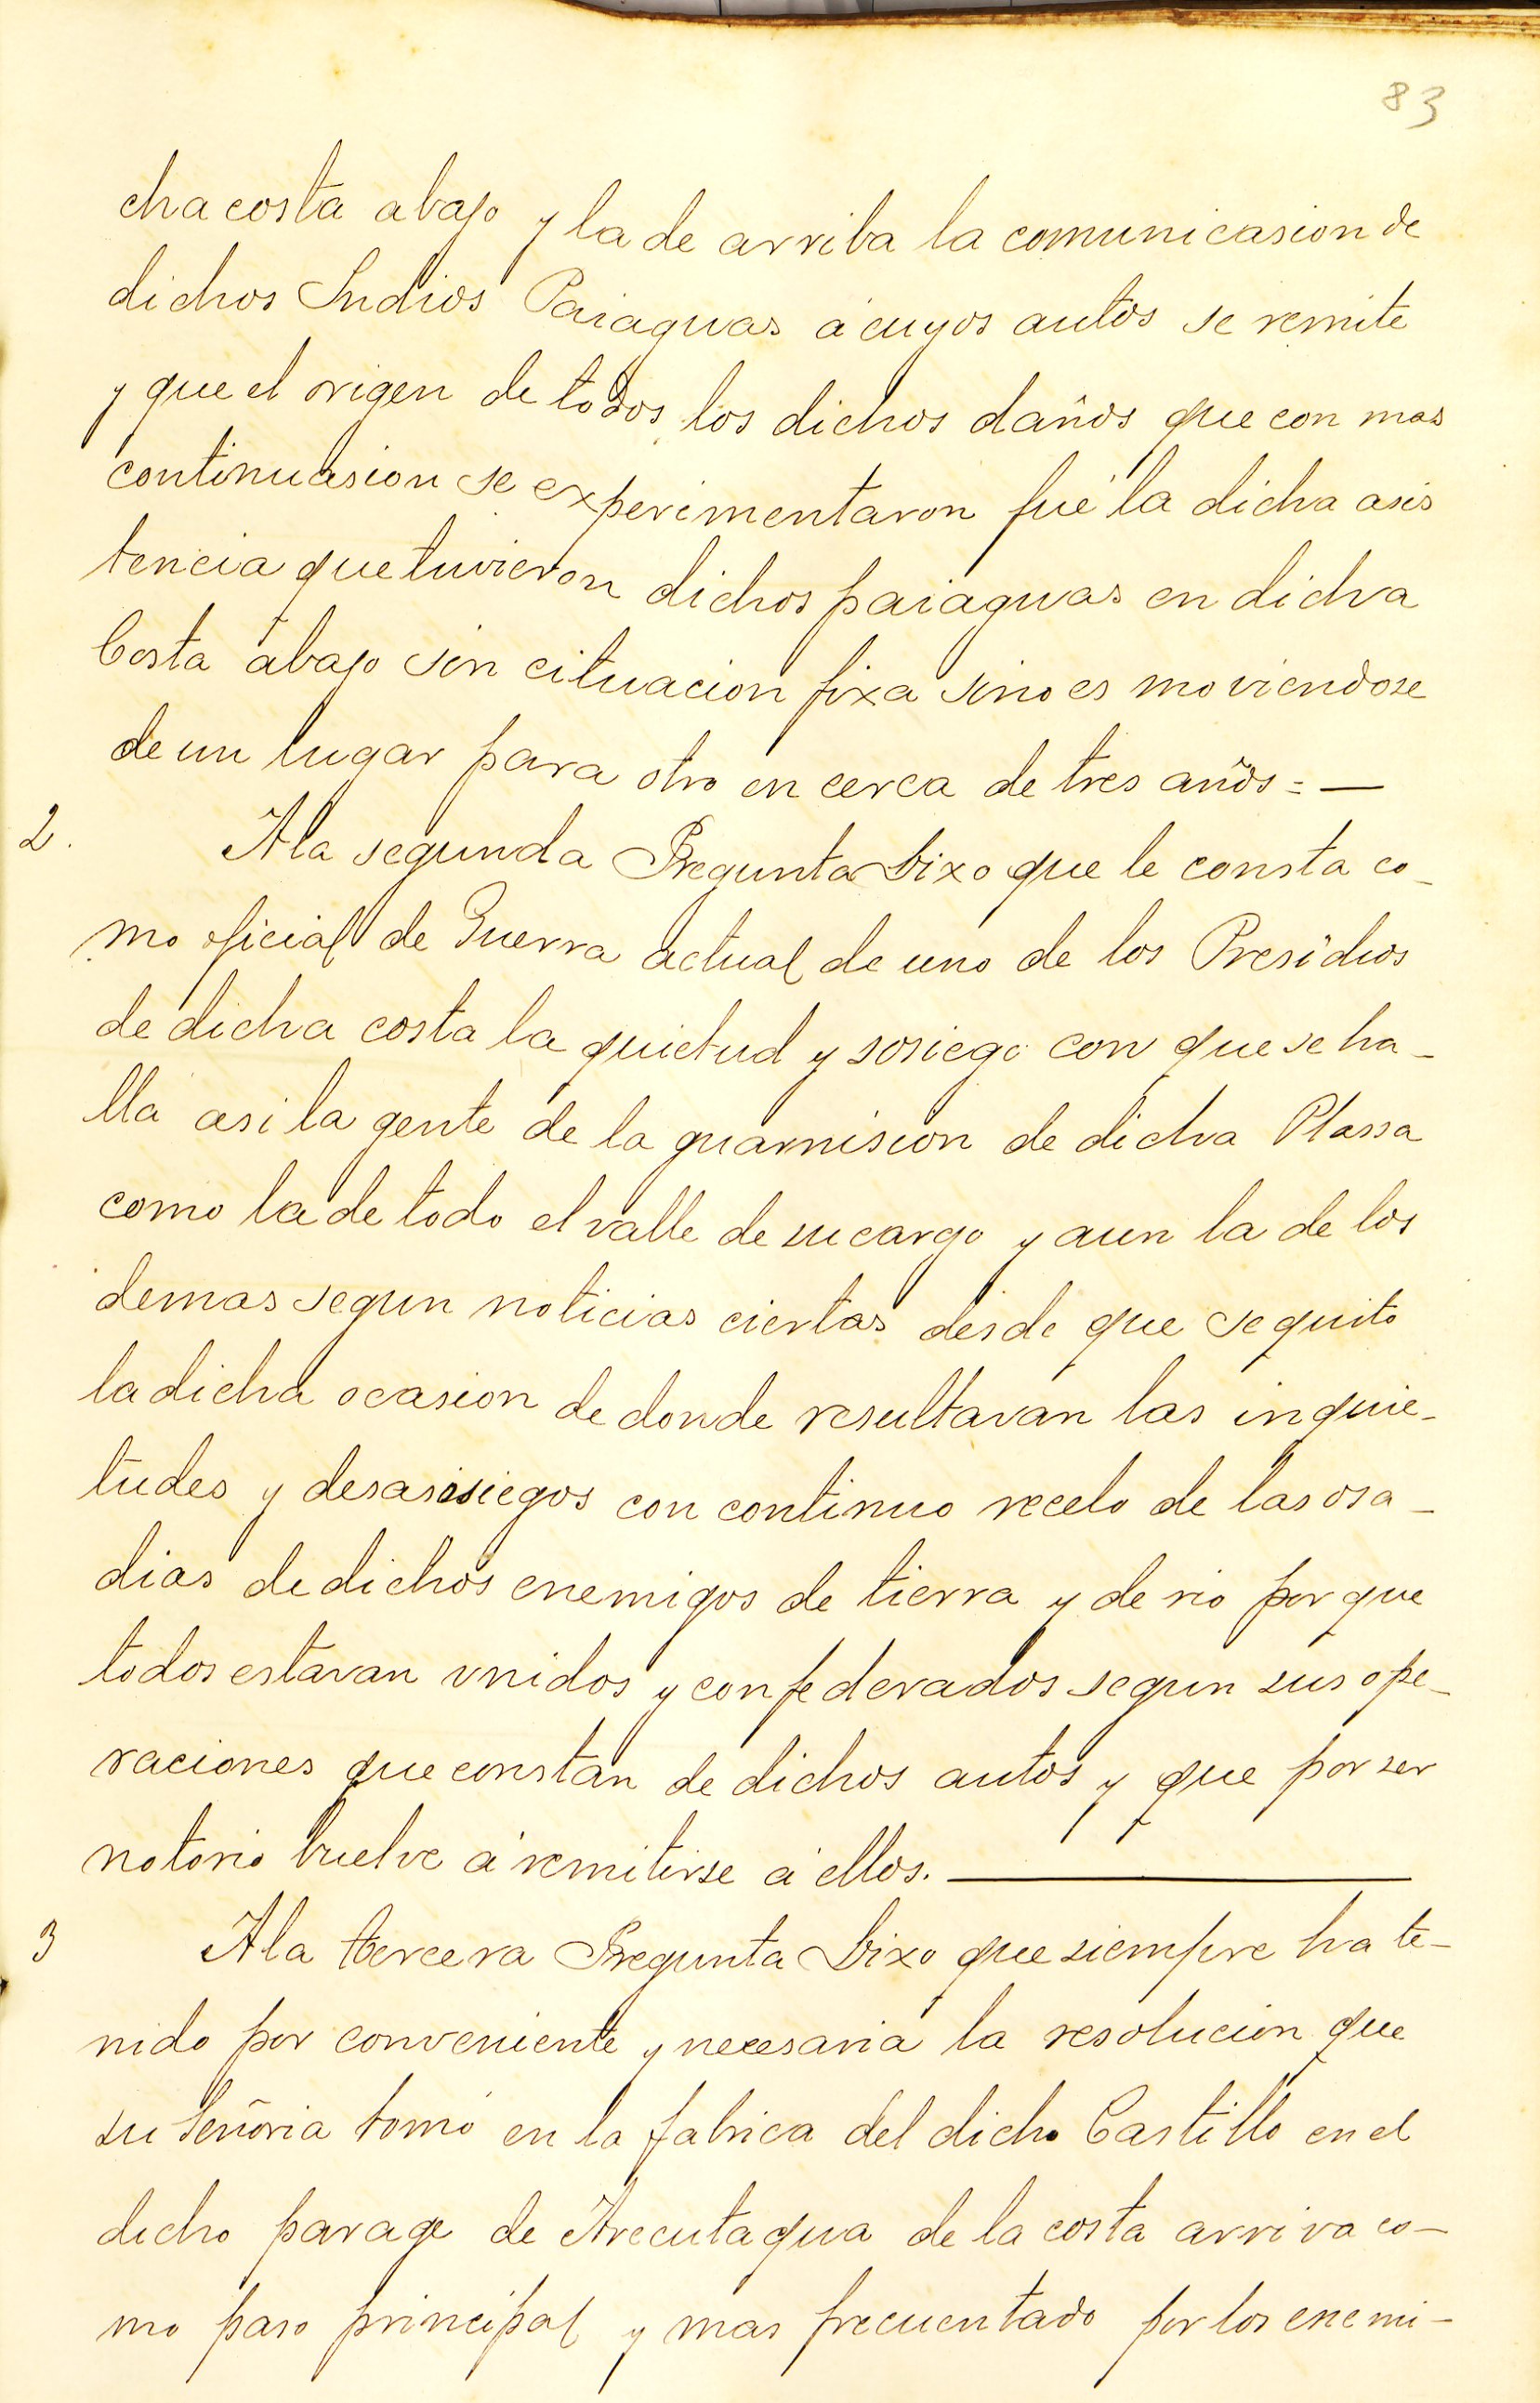 83
cha costa abajo y la de arriba la comunicasion de
dichos Indios Paiaguas á cuyos autos se remite
y que el origen de todos los dichos daños que con mas
continuasion se experimentaron fué la dicha asis
tencia que tuvieron dichos paiaguas en dicha
Costa abajo sin cituacion fixa sino es moviendose
de un lugar para otro en cerca de tres años = —
2. A la segunda Pregunta Dixo que le consta co-
mo oficial de Guerra actual de uno de los Presidios
de dicha costa la quietud y sosiego con que se ha-
lla asi la gente de la guarnision de dicha Plassa
como la de todo el valle de su cargo y aun la de los
demas segun noticias ciertas desde que se quito
la dicha ocasion de donde resultavan las inquie-
tudes y desasosiegos con continuo recelo de las osa-
dias de dichos enemigos de tierra y de rio por que
todos estavan vnidos y confederados segun sus ope-
raciones que constan de dichos autos y que por ser
notorio buelve á remitirse á ellos. —
3 A la tercera Pregunta Dixo que siempre ha te-
nido por conveniente y necesaria la resolucion que
su Señoria tomó en la fabrica del dicho Castillo en el
dicho parage de Arecutagua de la costa arriva co-
mo paso principal y mas frecuentado por los enemi-